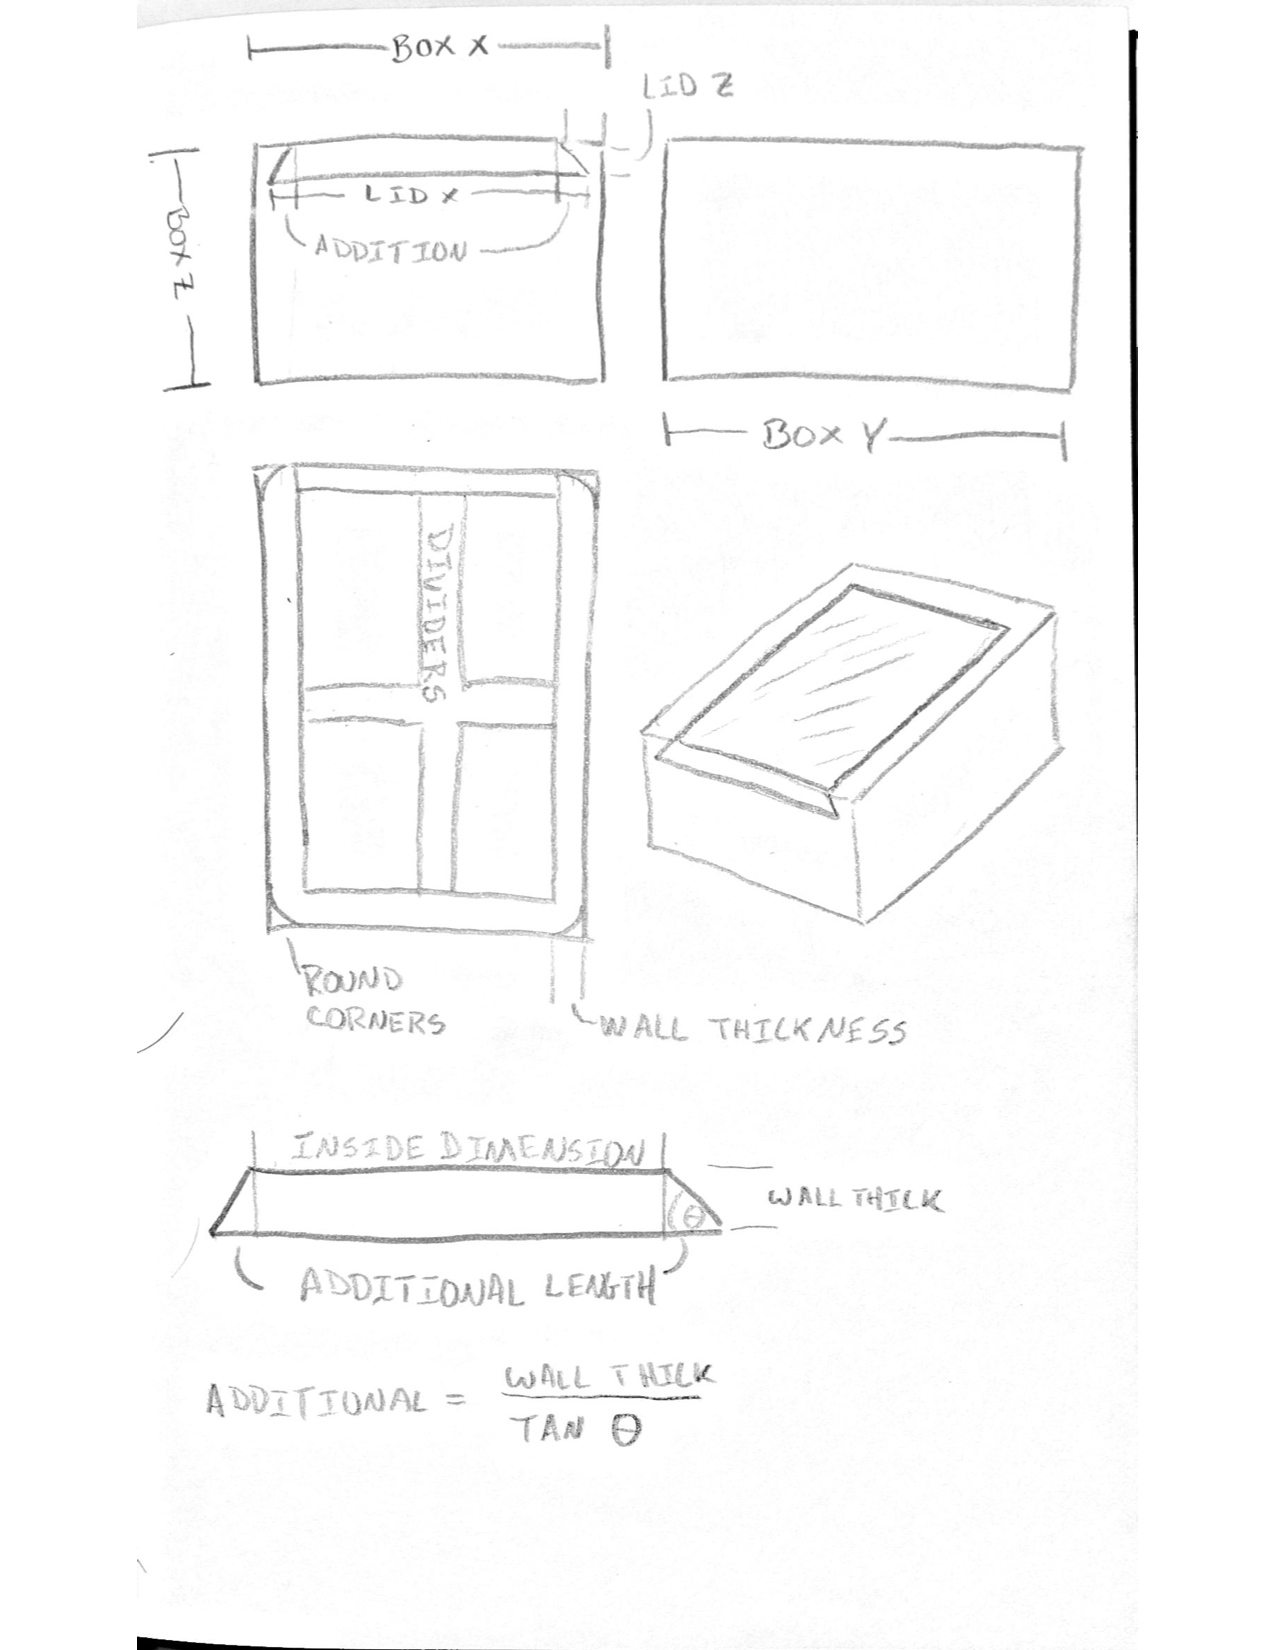 BOX X
LID Z
BOX Z
LID X
ADDITION
BOX Y
DIVIDERS
ROUND
CORNERS
WALL THICKNESS
INSIDE DIMENSION
WALL THICK
θ
ADDITIONAL LENGTH
ADDITIONAL = WALL THICK
TAN θ